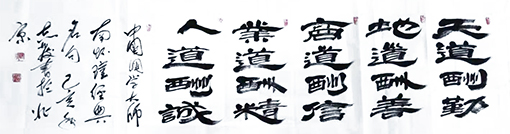 天道酬勤
地道酬善
商道酬信
業道酬精
人道酬誠
中國國学大師
南懷瑾經典
名句己亥秋
志敏書於北
京